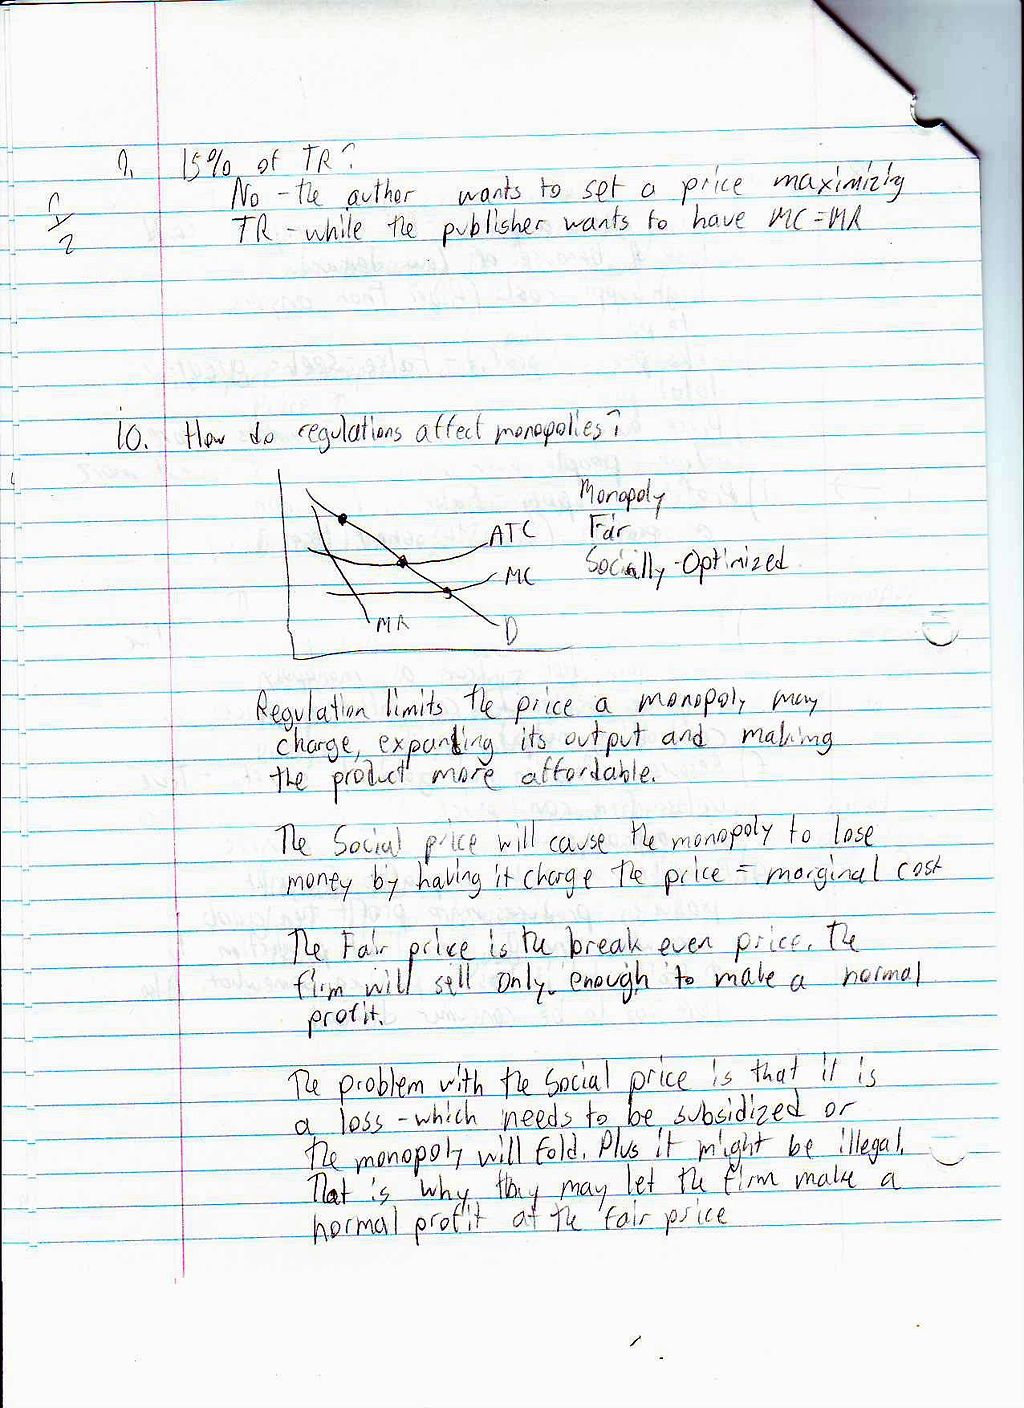 9. 15% of TR?
No - the author wants to set a price maximizing
TR - while the publisher wants to have MC = MR
10. How do regulations affect monopolies?
Monopoly
ATC
Fair
Socially-Optimized
MC
MR
D
Regulation limits the price a monopoly may
charge, expanding its output and making
the product more affordable.
The Social price will cause the monopoly to lose
money by having it charge the price = marginal cost
The Fair price is the break even price. The
firm will sell only enough to make a normal
profit.
The problem with the Social price is that it is
a loss - which needs to be subsidized or
the monopoly will fold. Plus it might be illegal.
That is why they may let the firm make a
normal profit at the fair price